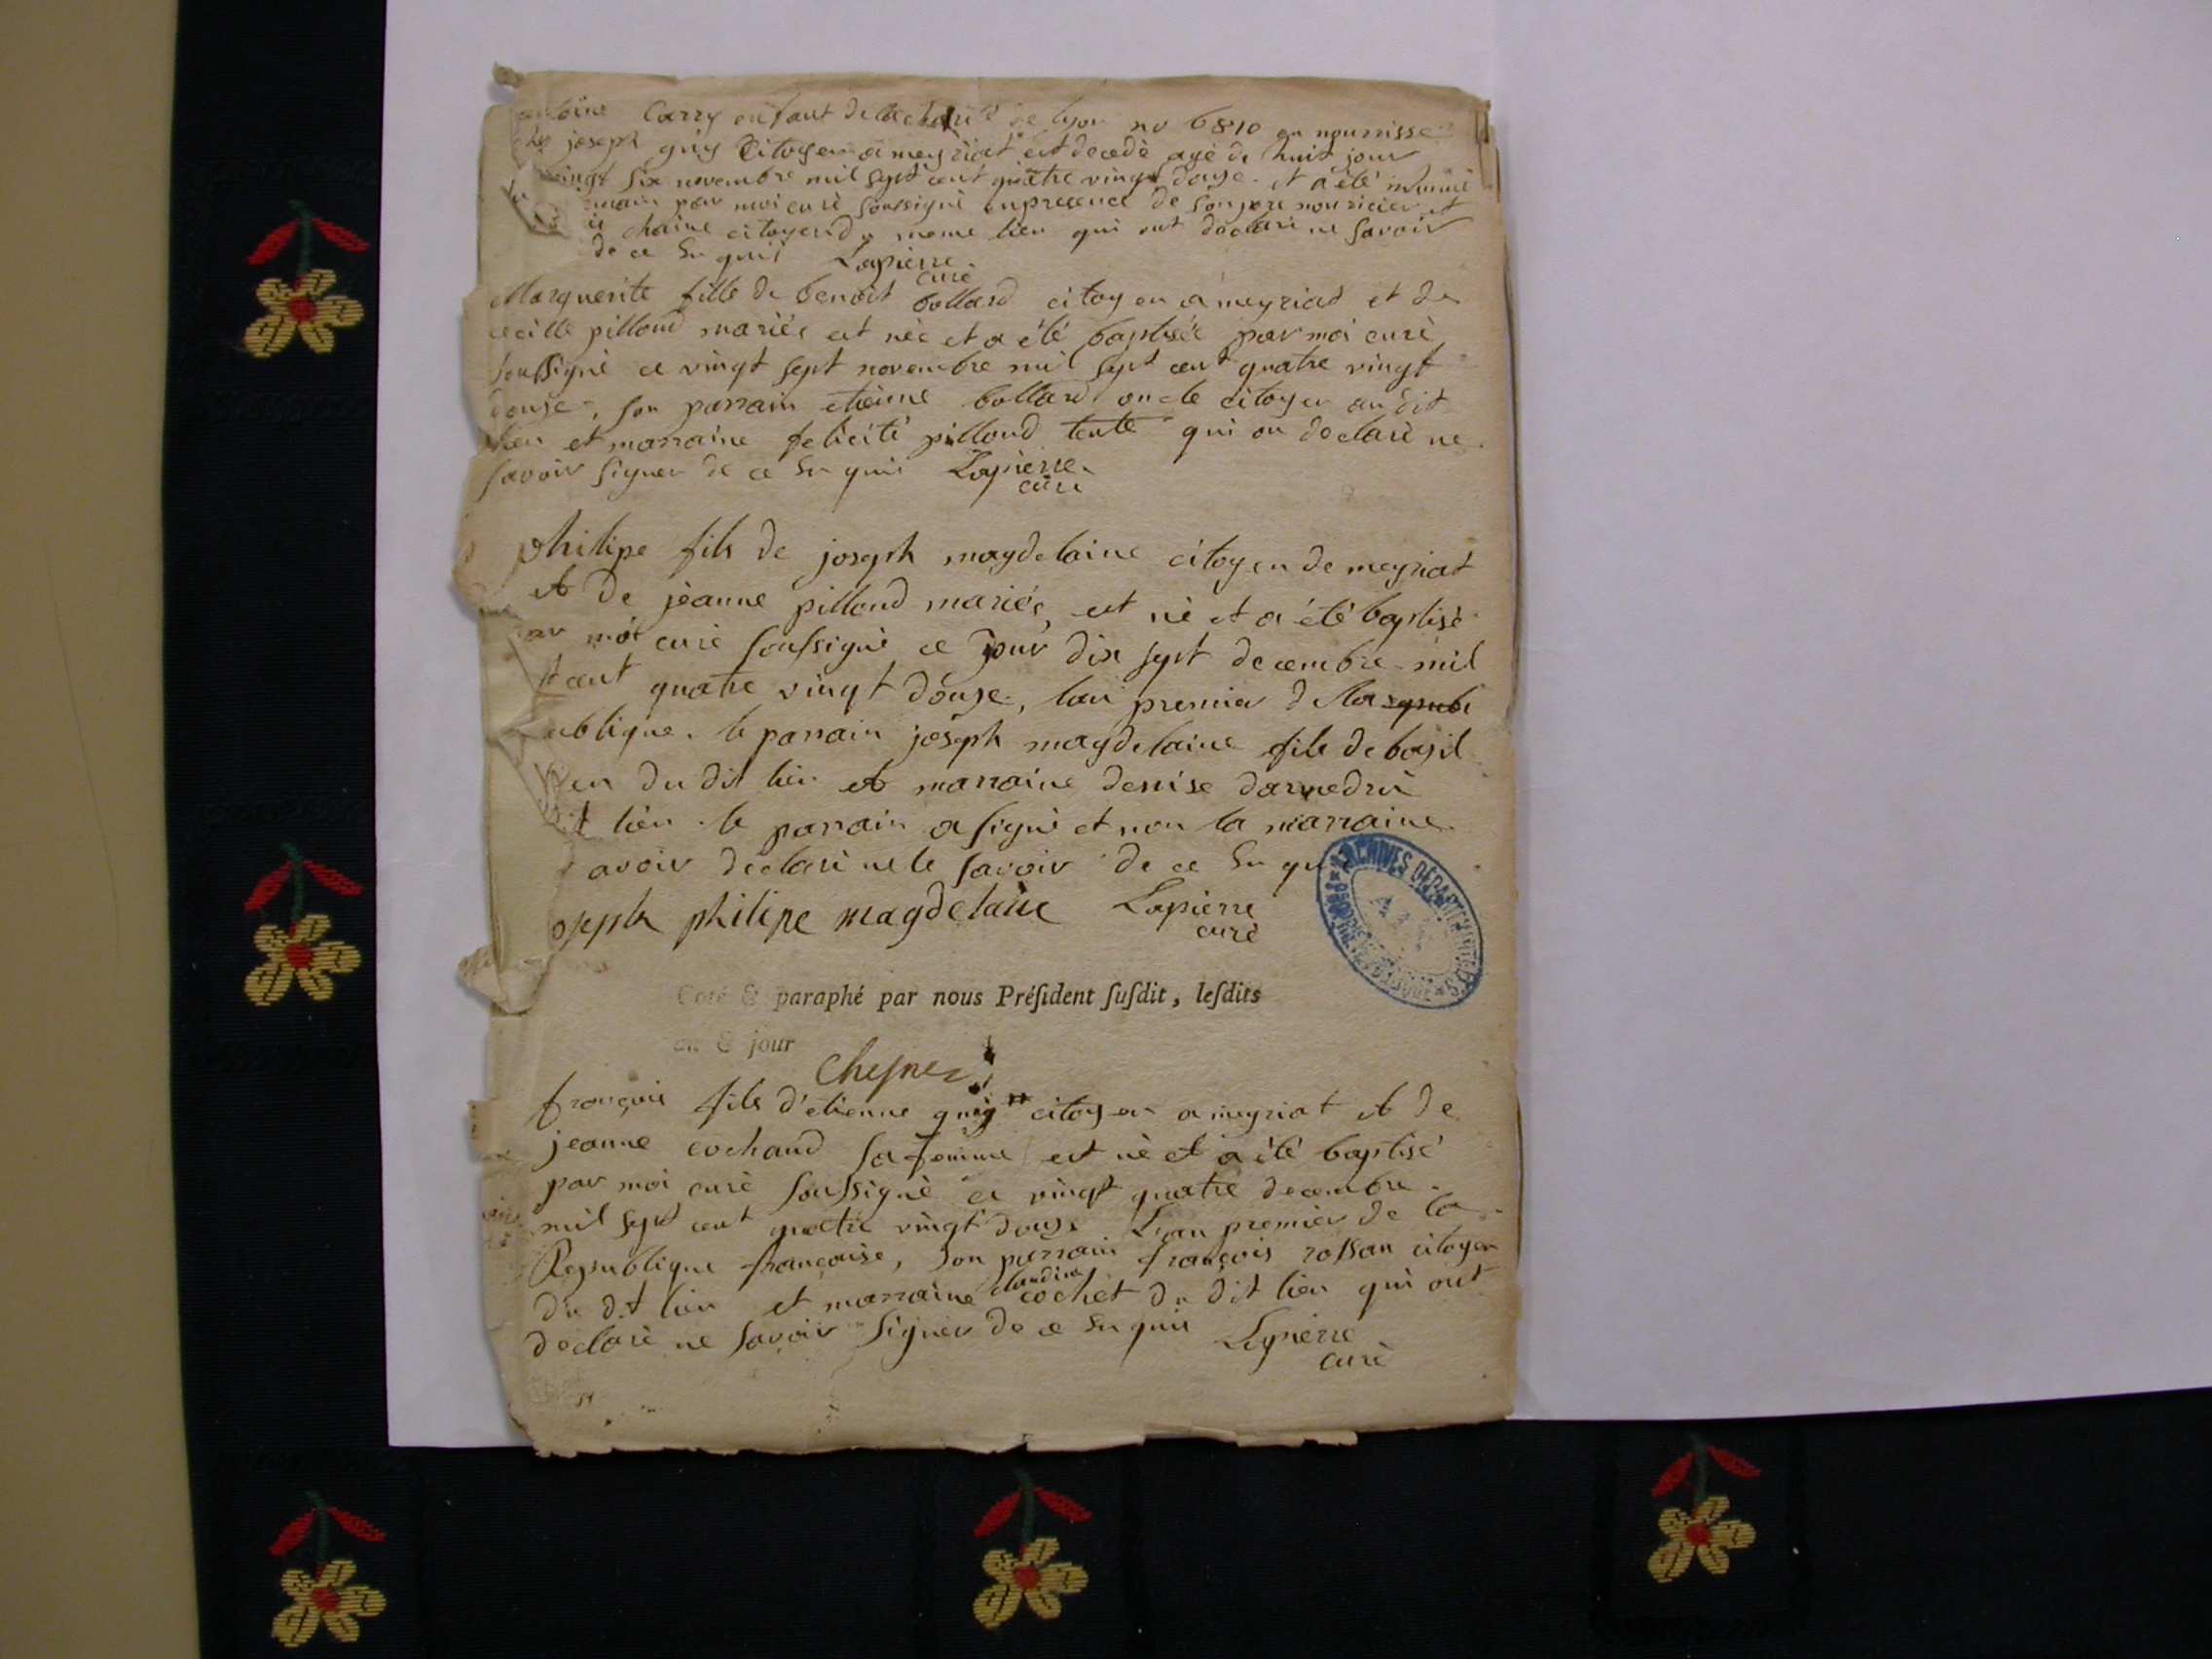 Carry enfant de la charité de lyon no 6810 en nourrisse
chez joseph guy Citoyen a meyriat est decedé agé de huit jour
vingt six novembre mil sept cent quatre vingt douze et a été inhumé
par moi curé soussigné en presence de son pere nouricier et
chaine citoyen du meme lieu qui ont déclaré ne savoir
de ce enquis Lapierre
curé
Marguerite fille de benoit bollard citoyen a meyriat et de
cecille pilloud mariés est née et a été baptisée par moi curé
soussigné ce vingt sept novembre mil sept cent quatre vingt
douze, son parrain etienne bollard oncle citoyen au dit
lieu et marraine felicité pilloud tente qui on declaré ne
savoir signer de ce enquis Lapierre
curé
philipe fils de joseph magdelaine citoyen de meyriat
et de jeanne pilloud mariés, est né et a été baptisé
par moi curé soussigné ce jour dix sept decembre mil
cent quatre vingt douze, lan premier de la
ublique. le parrain joseph magdelaine fils de basil
en du dit lieu et marraine denise
dit lieu. le parrain a signé et non la marraine
avoir declaré ne le savoir de ce enquis
oseph philipe magdelaine Lapierre
curé
ARCHIVES DÉPARTEMENTALES
Coté & paraphé par nous Préſident ſuſdit, leſdits
an & jour
Cheſnez
françois fils d'etienne guy citoyen a meyriat et de
jeanne cochaud sa femme est né et a été baptisé
par moi curé soussigné ce vingt quatre decembre
mil sept cent quatre vingt douze L'an premier de la
Republique françoise, son parrain françois rossan citoyen
du dit lieu et marraine claudine cochet du dit lieu qui ont
declaré ne savoir signer de ce enquis Lapierre
curé